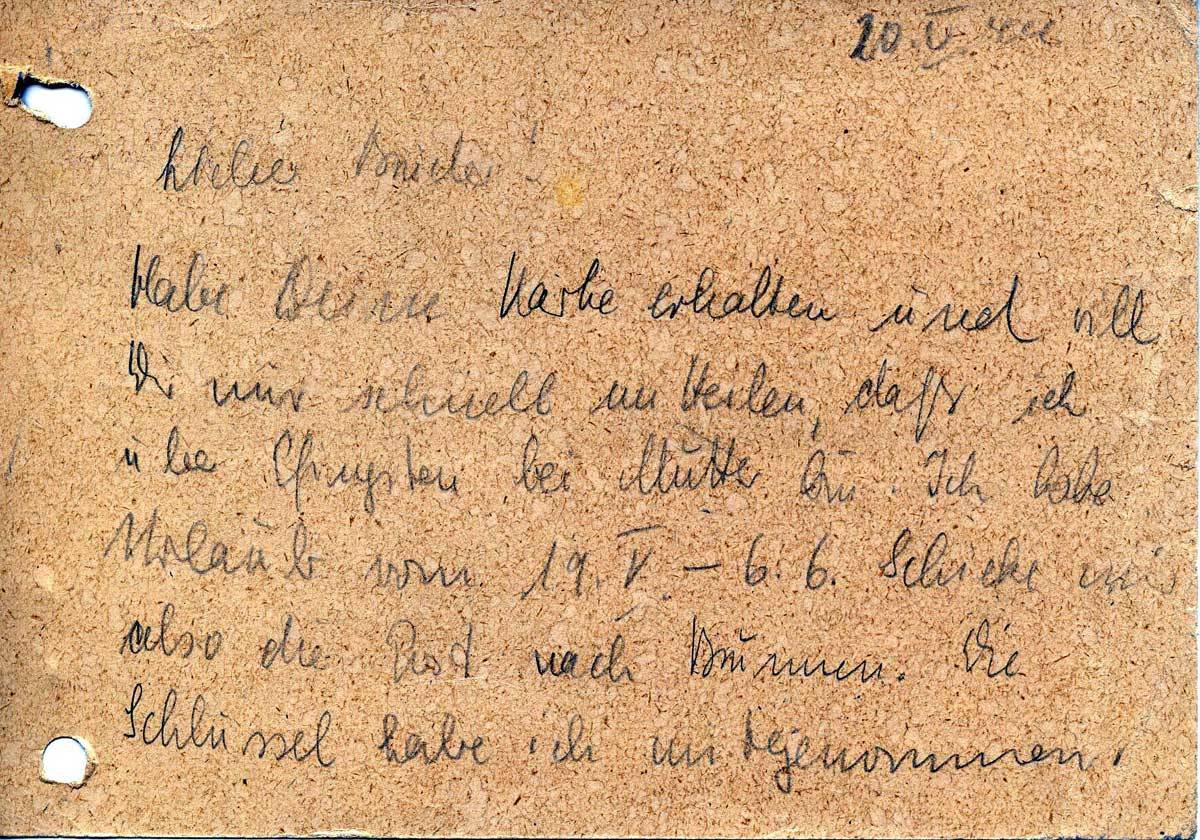 20. V. 44
Lieber Bruder!
Habe Deine Karte erhalten und will
Dir nur schnell mitteilen, daß ich
über Pfingsten bei Mutter bin. Ich habe
Urlaub vom 19. V. – 6. 6. Schicke mir
also die Post nach Brunnen. Die
Schlüssel habe ich mitgenommen.